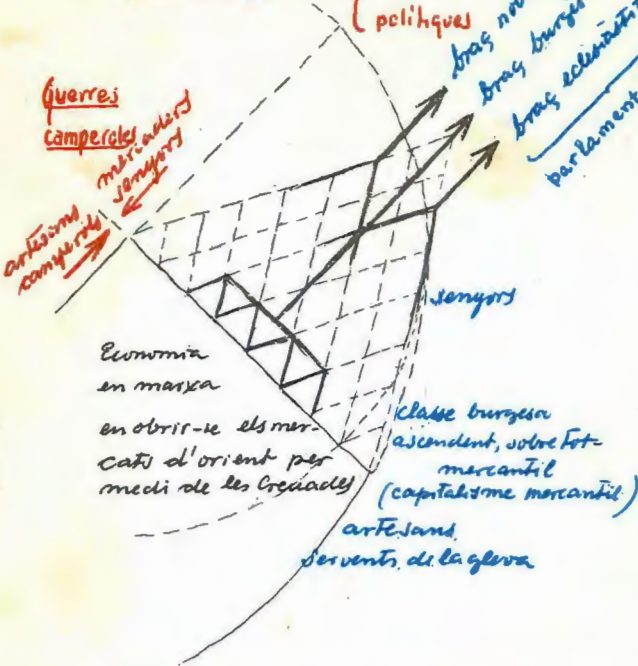 polítiques
braç
braç burges
braç eclesiàstic
parlament
Guerres
camperoles
mercaders
senyors
artesans
camperols
senyors
Economia
en marxa
en obrir-se els mer-
cats d'orient per
medi de les Creuades
classe burgesa
ascendent, sobretot
mercantil
(capitalisme mercantil)
artesans
servents de la gleva